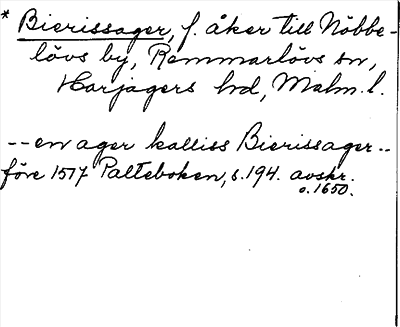 * Bierissager, f. åker till Nöbbe-
lövs by, Remmarlövs sn,
Harjagers hd, Malm. l.
-- en ager kalliss Bierissager --
före 1517 Palteboken, s. 194. avskr.
o. 1650.